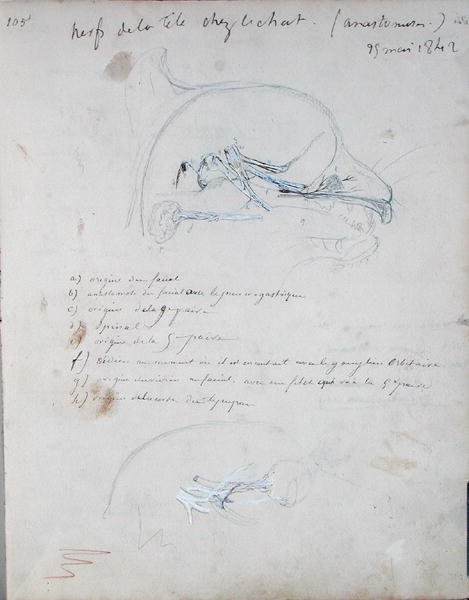 105
nerfs de la tête chez le chat. (anastomoses.)
25 mai 1842
a) origine du facial
b) anastomose du facial avec le pneumogastrique
c) origine de la 9e paire
d) spinal
e) origine de la 5e paire
f) Vidien au moment où il est en contact avec le ganglion Orbitaire
g) origine du vidien au facial, avec un filet qui va à la 5e paire
h) origine de la corde du tympan